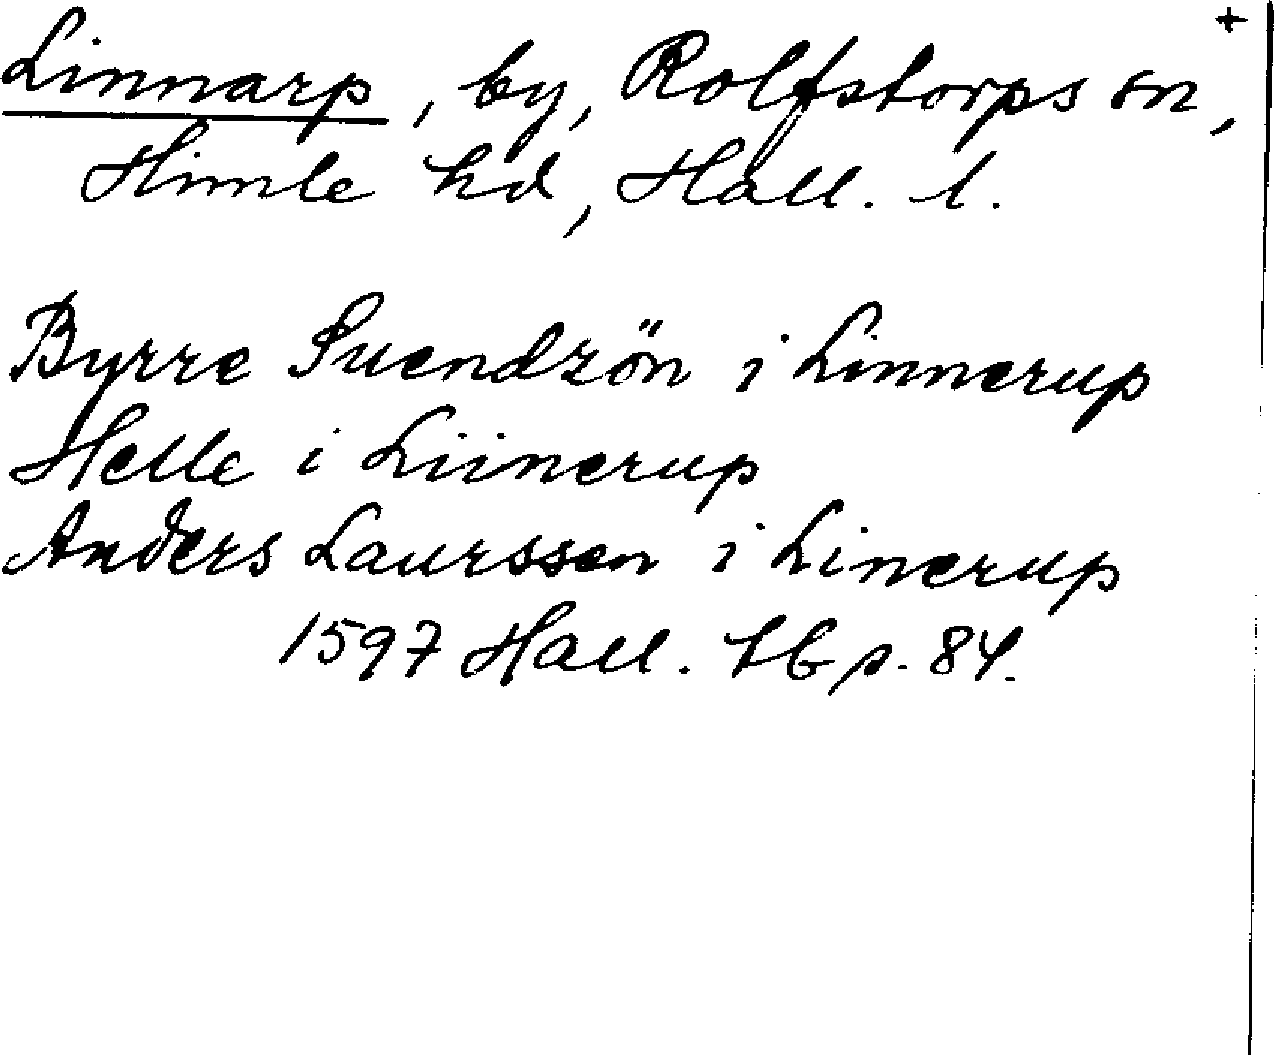 +
Linnarp, by, Rolfstorps sn,
Himle hd, Hall. l.
Byrre Suendzön i Linnerup
Helle i Liinerup
Anders Laurssen i Linerup
1597 Hall. lb p. 84.